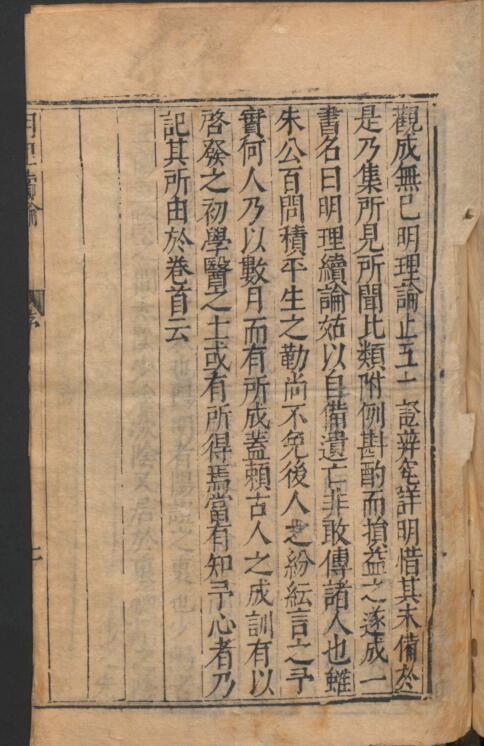 觀成無已明理論止五十證辨究詳明惜其未備於
是乃集所見所聞比類附例斟酌而損益之遂成一
書名曰明理續論姑以自備遺亡非敢傳諸人也雖
朱公百問積平生之勤尚不免後人之紛紜言之予
實何人乃以數月而有所成蓋賴古人之成訓有以
啓發之初學醫之士或有所得焉當有知予心者乃
記其所由於卷首云
明理續論
序